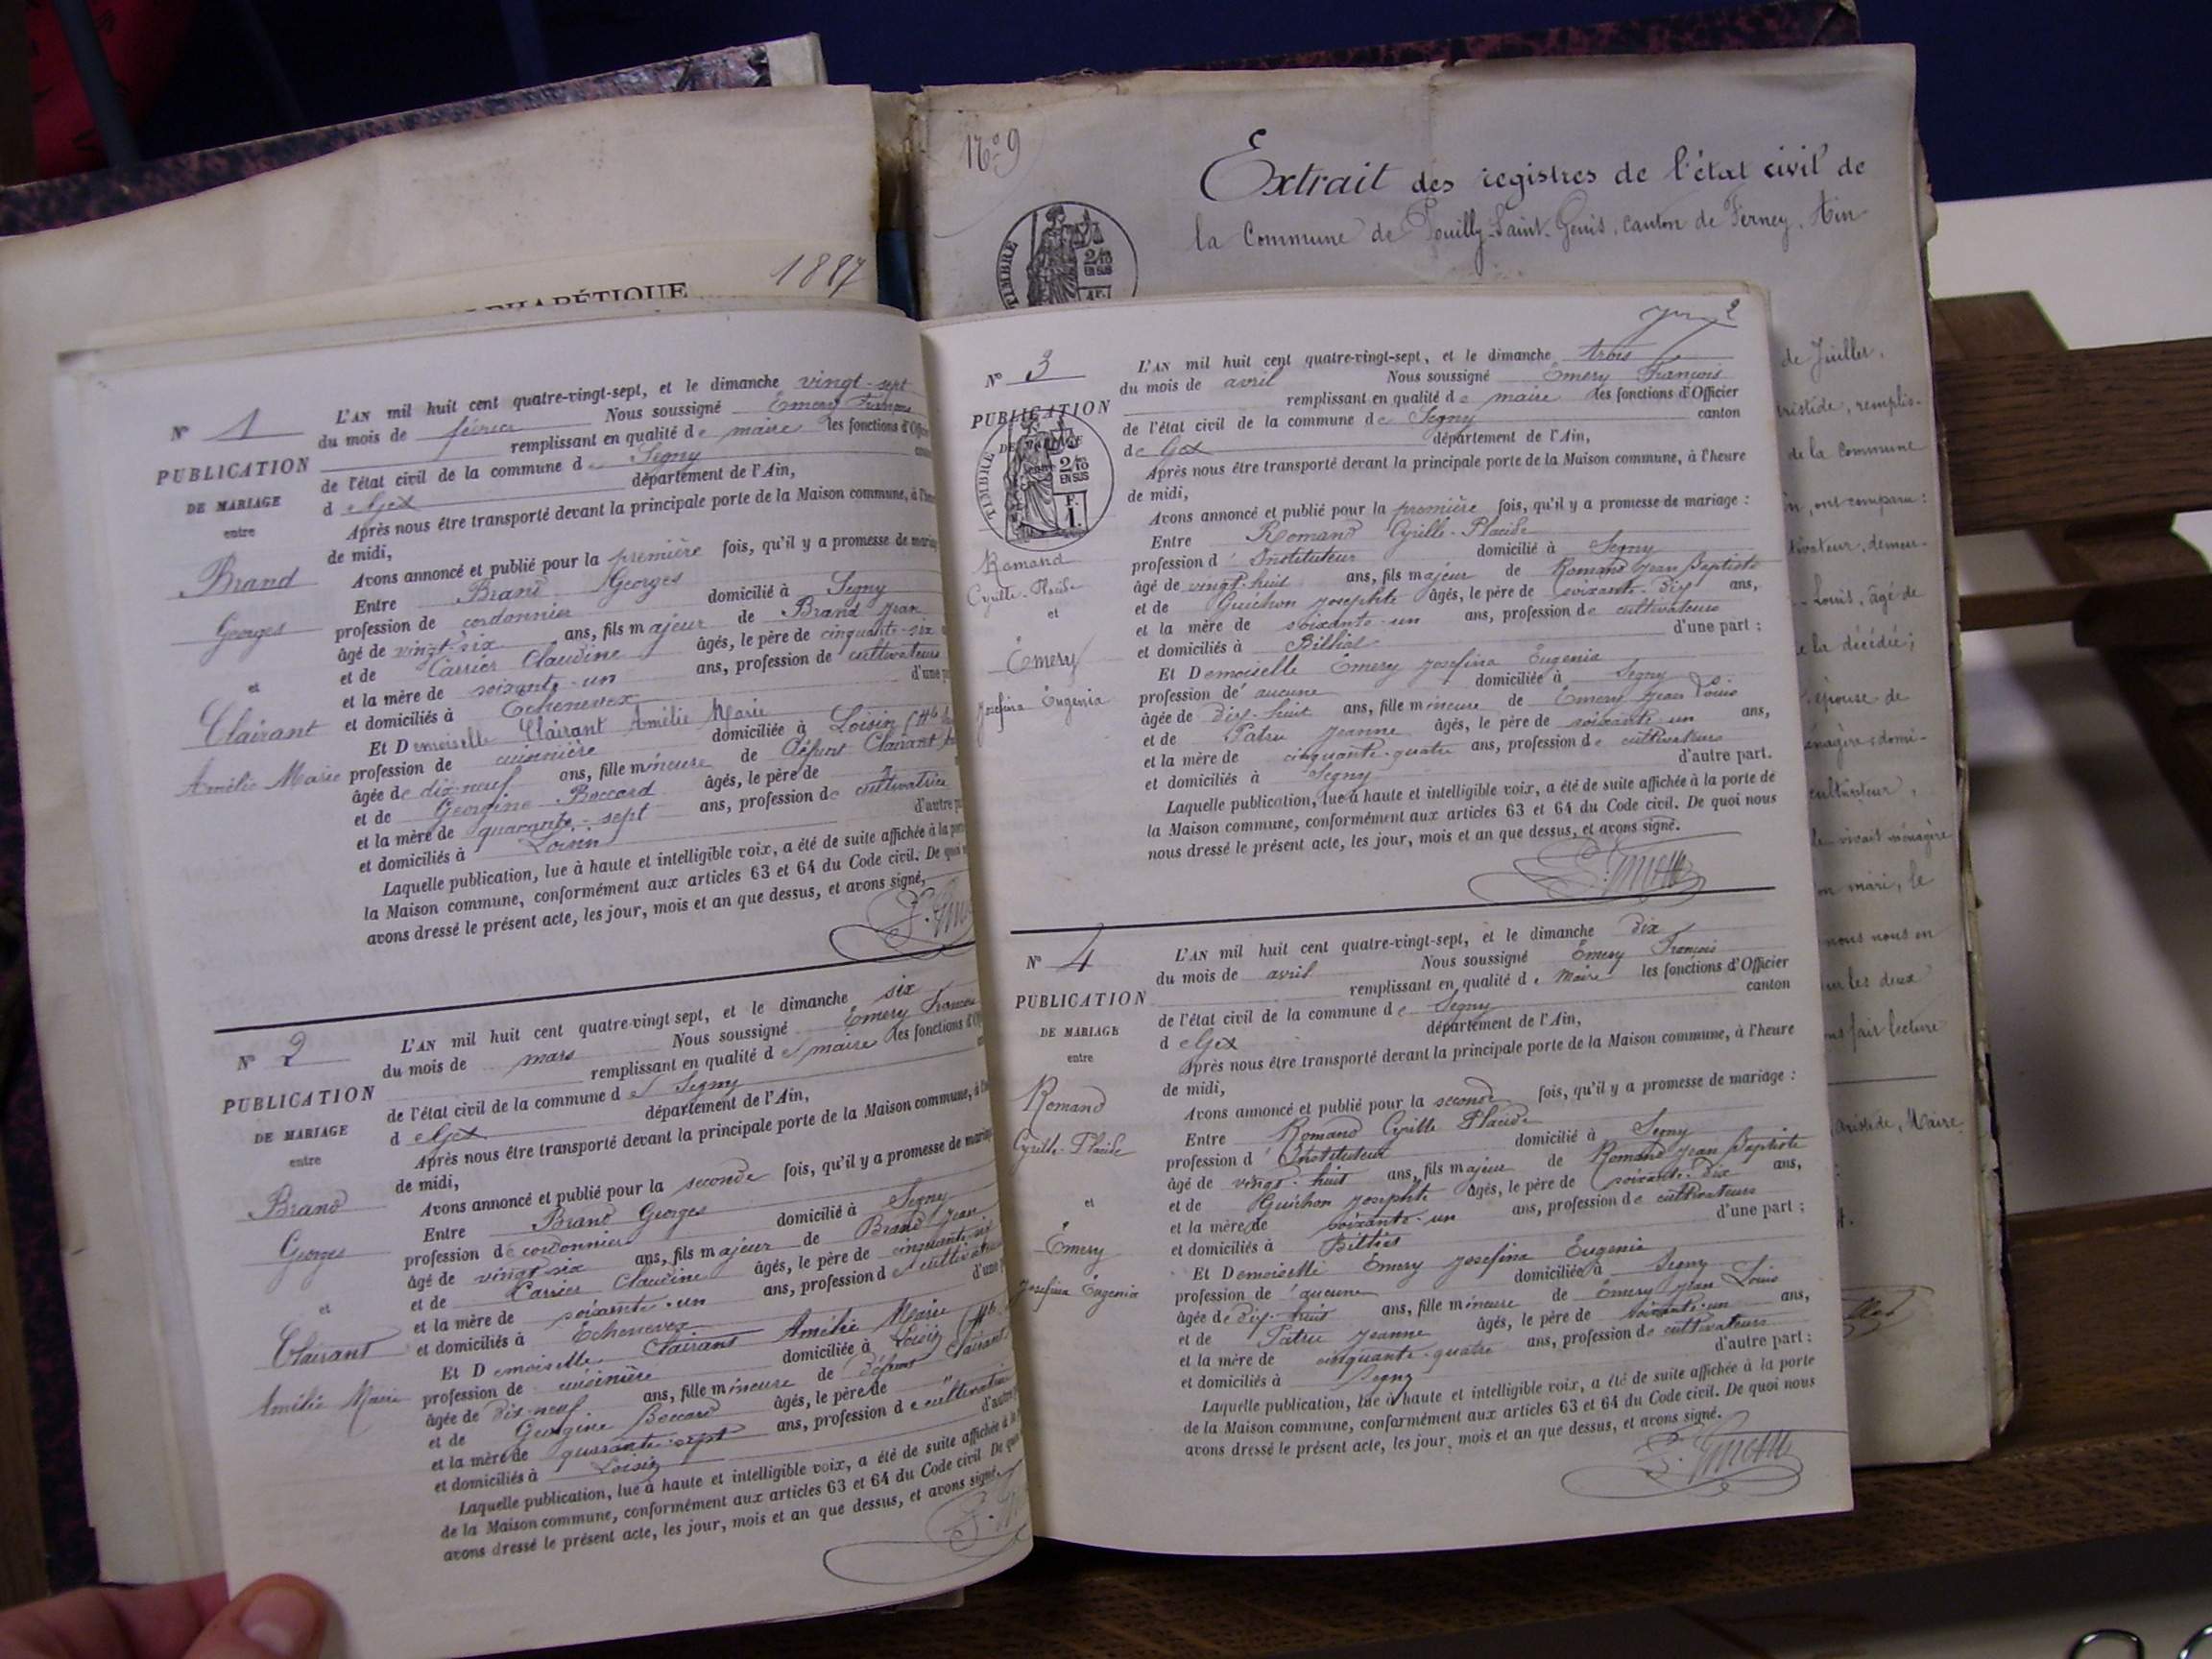 1887
ALPHABÉTIQUE
N° 1
PUBLICATION
DE MARIAGE
entre
Brand
Georges
et
Clairant
Amélie Marie
L'AN mil huit cent quatre-vingt-sept, et le dimanche vingt-sept
du mois de février Nous soussigné Émery François
remplissant en qualité de maire les fonctions d'Offic
de l'état civil de la commune de Segny
de Gex département de l'Ain,
Après nous être transporté devant la principale porte de la Maison commune, à l'heu
de midi,
Avons annoncé et publié pour la première fois, qu'il y a promesse de maria
Entre Brand Georges
profession de cordonnier domicilié à Segny
âgé de vingt-six ans, fils majeur de Brand Jean
et de Carrier Claudine âgés, le père de cinquante-six
et la mère de soixante-un ans, profession de cultivateurs
et domiciliés à Echenevex d'une p
Et Demoiselle Clairant Amélie Marie
profession de cuisinière domiciliée à Loisin (Hte
âgée de dix-neuf ans, fille mineure de défunt Clairant
et de Georgine Boccard âgés, le père de
et la mère de quarante-sept ans, profession de cultivatrice
et domiciliés à Loisin d'autre p
Laquelle publication, lue à haute et intelligible voix, a été de suite affichée à la por
la Maison commune, conformément aux articles 63 et 64 du Code civil. De quoi n
avons dressé le présent acte, les jour, mois et an que dessus, et avons signé,
N° 2
PUBLICATION
DE MARIAGE
entre
Brand
Georges
et
Clairant
Amélie Marie
L'AN mil huit cent quatre-vingt sept, et le dimanche six
du mois de mars Nous soussigné Émery François
remplissant en qualité de maire les fonctions d'Of
de l'état civil de la commune de Segny
de Gex département de l'Ain,
Après nous être transporté devant la principale porte de la Maison commune, à l'h
de midi,
Avons annoncé et publié pour la seconde fois, qu'il y a promesse de mariag
Entre Brand Georges
profession de cordonnier domicilié à Segny
âgé de vingt-six ans, fils majeur de Brand Jean
et de Carrier Claudine âgés, le père de cinquante-six
et la mère de soixante-un ans, profession de cultivateurs
et domiciliés à Echenevex d'une p
Et Demoiselle Clairant Amélie Marie
profession de cuisinière domiciliée à Loisin (Hte
âgée de dix-neuf ans, fille mineure de défunt Clairant
et de Georgine Boccard âgés, le père de "
et la mère de quarante-sept ans, profession de cultivatrice
et domiciliés à Loisin d'autre
Laquelle publication, lue à haute et intelligible voix, a été de suite affichée à la
de la Maison commune, conformément aux articles 63 et 64 du Code civil. De quoi
avons dressé le présent acte, les jour, mois et an que dessus, et avons signé.
N° 9
Extrait des registres de l'état civil de
la Commune de Pouilly-Saint-Genis, canton de Ferney, Ain
TIMBRE
2/10
EN SUS
2
N° 3
PUBLICATION
DE MARIAGE
TIMBRE
2/10
EN SUS
F.
1.
Romand
Cyrille-Placide
et
Émery
Josefina Eugenia
L'AN mil huit cent quatre-vingt-sept, et le dimanche trois
du mois de avril Nous soussigné Émery François
remplissant en qualité de maire les fonctions d'Officier
de l'état civil de la commune de Segny canton
de Gex département de l'Ain,
Après nous être transporté devant la principale porte de la Maison commune, à l'heure
de midi,
Avons annoncé et publié pour la première fois, qu'il y a promesse de mariage :
Entre Romand Cyrille-Placide
profession d'Instituteur domicilié à Segny
âgé de vingt-huit ans, fils majeur de Romand Jean Baptiste
et de Guichon Josephte âgés, le père de soixante-dix ans,
et la mère de soixante-un ans, profession de cultivateurs
et domiciliés à Billiat d'une part ;
Et Demoiselle Émery Josefina Eugenia
profession de aucune domiciliée à Segny
âgée de dix-huit ans, fille mineure de Émery Jean Louis
et de Patru Jeanne âgés, le père de soixante-un ans,
et la mère de cinquante-quatre ans, profession de cultivateurs
et domiciliés à Segny d'autre part.
Laquelle publication, lue à haute et intelligible voix, a été de suite affichée à la porte de
la Maison commune, conformément aux articles 63 et 64 du Code civil. De quoi nous
nous dressé le présent acte, les jour, mois et an que dessus, et avons signé.
N° 4
PUBLICATION
DE MARIAGE
entre
Romand
Cyrille-Placide
et
Émery
Josefina Eugenia
L'AN mil huit cent quatre-vingt-sept, et le dimanche dix
du mois de avril Nous soussigné Émery François
remplissant en qualité de Maire les fonctions d'Officier
de l'état civil de la commune de Segny canton
de Gex département de l'Ain,
Après nous être transporté devant la principale porte de la Maison commune, à l'heure
de midi,
Avons annoncé et publié pour la seconde fois, qu'il y a promesse de mariage :
Entre Romand Cyrille Placide
profession d'Instituteur domicilié à Segny
âgé de vingt-huit ans, fils majeur de Romand Jean Baptiste
et de Guichon Josephte âgés, le père de soixante-dix ans,
et la mère de soixante-un ans, profession de cultivateurs
et domiciliés à Billiat d'une part ;
Et Demoiselle Émery Josefina Eugenia
profession d'aucune domiciliée à Segny
âgée de dix-huit ans, fille mineure de Émery Jean Louis
et de Patru Jeanne âgés, le père de soixante-un ans,
et la mère de cinquante-quatre ans, profession de cultivateurs
et domiciliés à Segny d'autre part ;
Laquelle publication, lue à haute et intelligible voix, a été de suite affichée à la porte
de la Maison commune, conformément aux articles 63 et 64 du Code civil. De quoi nous
avons dressé le présent acte, les jour, mois et an que dessus, et avons signé.
de Juillet,
Aristide, remplis-
de la commune
ont comparu :
demeu-
Louis, âgé de
la décédée ;
épouse de
domi-
cultivateur,
ménagère
mari, le
nous nous en
les deux
fait lecture
Aristide, Maire